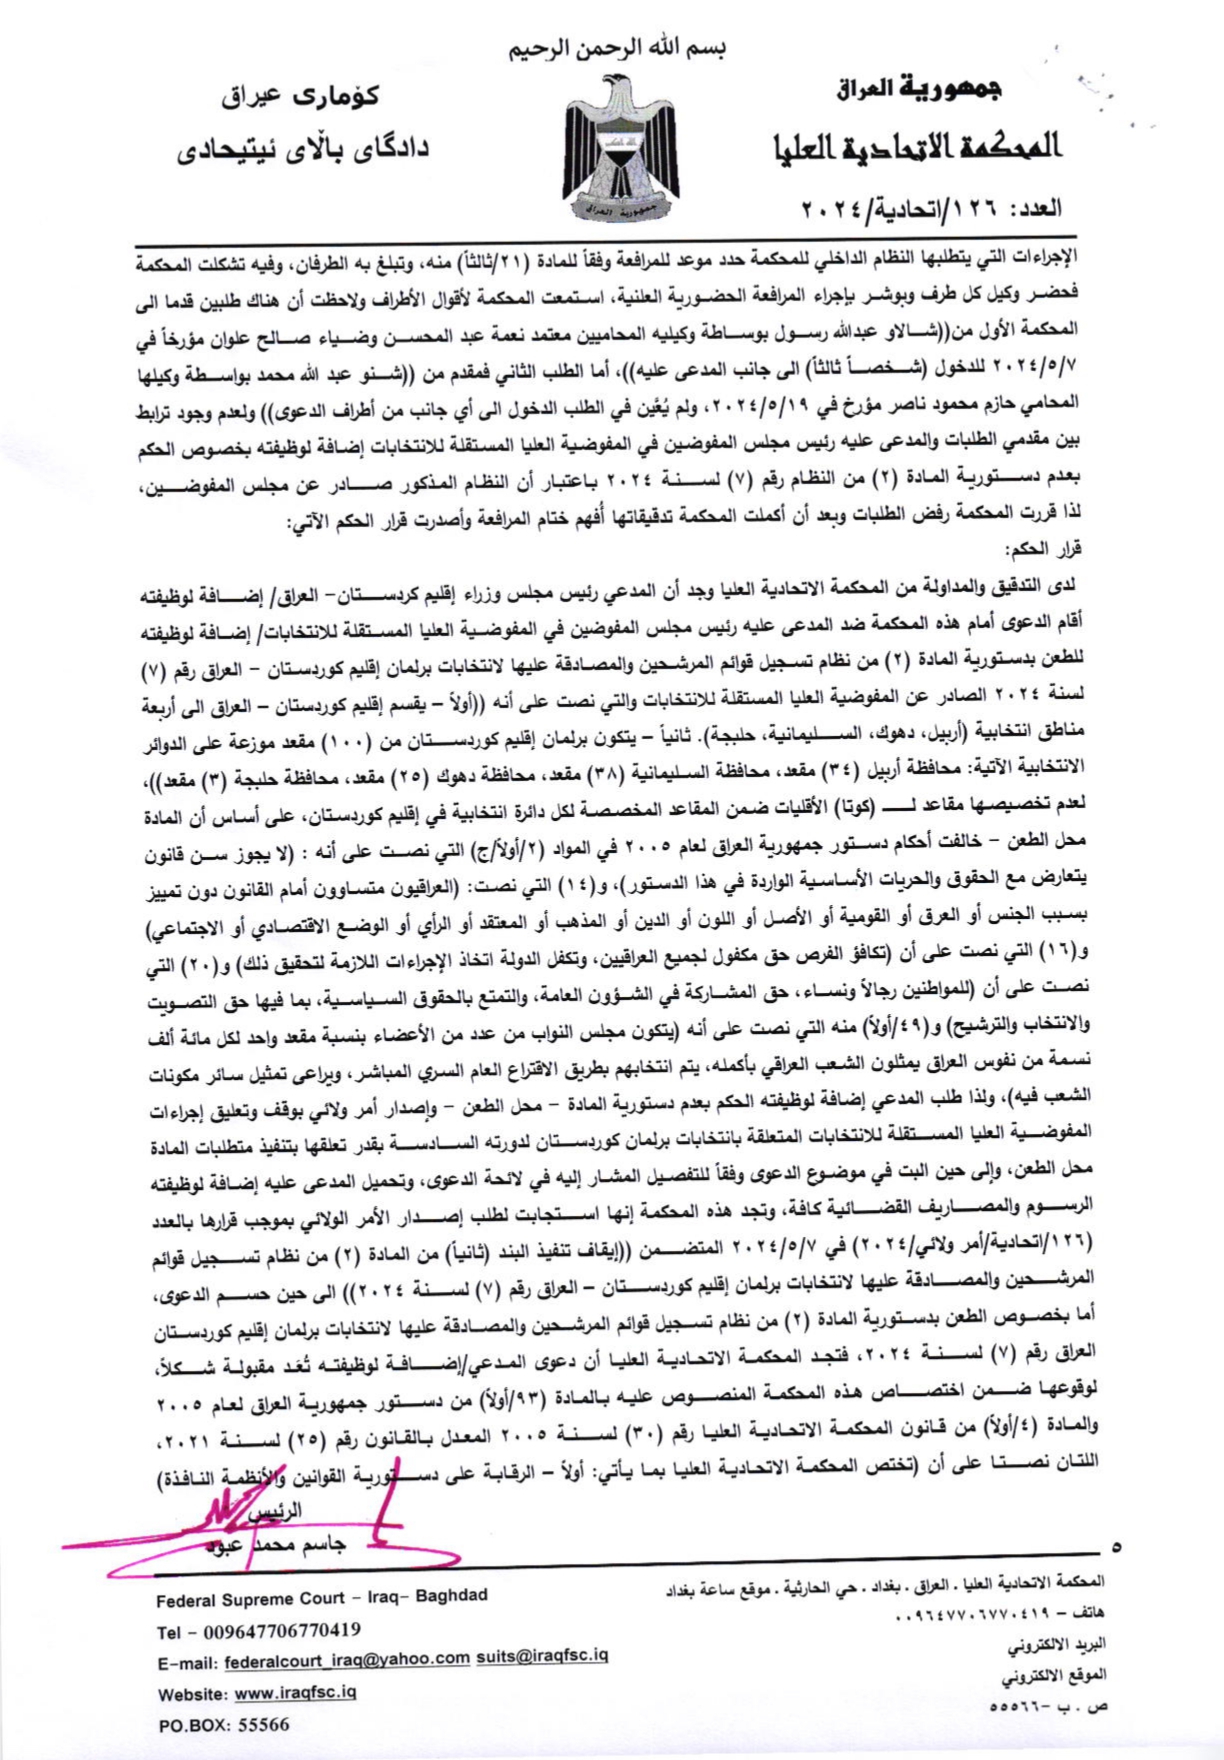 بسم الله الرحمن الرحيم
جمهورية العراق
كۆماری عیراق
المحكمة الاتحادية العليا
دادگای باڵای ئیتیحادی
جمهورية العراق
العدد: ١٢٦/اتحادية/٢٠٢٤
الإجراءات التي يتطلبها النظام الداخلي للمحكمة حدد موعد للمرافعة وفقاً للمادة (٢١/ثالثاً) منه، وتبلغ به الطرفان، وفيه تشكلت المحكمة
فحضر وكيل كل طرف وبوشر بإجراء المرافعة الحضورية العلنية، استمعت المحكمة لأقوال الأطراف ولاحظت أن هناك طلبين قدما الى
المحكمة الأول من((شالاو عبدالله رسول بوساطة وكيليه المحاميين معتمد نعمة عبد المحسن وضياء صالح علوان مؤرخاً في
٢٠٢٤/٥/٧ للدخول (شخصاً ثالثاً) الى جانب المدعى عليه))، أما الطلب الثاني فمقدم من ((شنو عبد الله محمد بواسطة وكيلها
المحامي حازم محمود ناصر مؤرخ في ٢٠٢٤/٥/١٩، ولم يُعَين في الطلب الدخول الى أي جانب من أطراف الدعوى)) ولعدم وجود ترابط
بين مقدمي الطلبات والمدعى عليه رئيس مجلس المفوضين في المفوضية العليا المستقلة للانتخابات إضافة لوظيفته بخصوص الحكم
بعدم دستورية المادة (٢) من النظام رقم (٧) لسنة ٢٠٢٤ باعتبار أن النظام المذكور صادر عن مجلس المفوضين،
لذا قررت المحكمة رفض الطلبات وبعد أن أكملت المحكمة تدقيقاتها أُفهم ختام المرافعة وأصدرت قرار الحكم الآتي:
قرار الحكم:
لدى التدقيق والمداولة من المحكمة الاتحادية العليا وجد أن المدعي رئيس مجلس وزراء إقليم كردستان- العراق/ إضافة لوظيفته
أقام الدعوى أمام هذه المحكمة ضد المدعى عليه رئيس مجلس المفوضين في المفوضية العليا المستقلة للانتخابات/ إضافة لوظيفته
للطعن بدستورية المادة (٢) من نظام تسجيل قوائم المرشحين والمصادقة عليها لانتخابات برلمان إقليم كوردستان – العراق رقم (٧)
لسنة ٢٠٢٤ الصادر عن المفوضية العليا المستقلة للانتخابات والتي نصت على أنه ((أولاً – يقسم إقليم كوردستان – العراق الى أربعة
مناطق انتخابية (أربيل، دهوك، السليمانية، حلبجة). ثانياً – يتكون برلمان إقليم كوردستان من (١٠٠) مقعد موزعة على الدوائر
الانتخابية الآتية: محافظة أربيل (٣٤) مقعد، محافظة السليمانية (٣٨) مقعد، محافظة دهوك (٢٥) مقعد، محافظة حلبجة (٣) مقعد))،
لعدم تخصيصها مقاعد لـــ (كوتا) الأقليات ضمن المقاعد المخصصة لكل دائرة انتخابية في إقليم كوردستان، على أساس أن المادة
محل الطعن – خالفت أحكام دستور جمهورية العراق لعام ٢٠٠٥ في المواد (٢/أولاً/ج) التي نصت على أنه : (لا يجوز سن قانون
يتعارض مع الحقوق والحريات الأساسية الواردة في هذا الدستور)، و(١٤) التي نصت: (العراقيون متساوون أمام القانون دون تمييز
بسبب الجنس أو العرق أو القومية أو الأصل أو اللون أو الدين أو المذهب أو المعتقد أو الرأي أو الوضع الاقتصادي أو الاجتماعي)
و(١٦) التي نصت على أن (تكافؤ الفرص حق مكفول لجميع العراقيين، وتكفل الدولة اتخاذ الإجراءات اللازمة لتحقيق ذلك) و(٢٠) التي
نصت على أن (للمواطنين رجالاً ونساء، حق المشاركة في الشؤون العامة، والتمتع بالحقوق السياسية، بما فيها حق التصويت
والانتخاب والترشيح) و(٤٩/أولاً) منه التي نصت على أنه (يتكون مجلس النواب من عدد من الأعضاء بنسبة مقعد واحد لكل مائة ألف
نسمة من نفوس العراق يمثلون الشعب العراقي بأكمله، يتم انتخابهم بطريق الاقتراع العام السري المباشر، ويراعى تمثيل سائر مكونات
الشعب فيه)، ولذا طلب المدعي إضافة لوظيفته الحكم بعدم دستورية المادة – محل الطعن – وإصدار أمر ولائي بوقف وتعليق إجراءات
المفوضية العليا المستقلة للانتخابات المتعلقة بانتخابات برلمان كوردستان لدورته السادسة بقدر تعلقها بتنفيذ متطلبات المادة
محل الطعن، وإلى حين البت في موضوع الدعوى وفقاً للتفصيل المشار إليه في لائحة الدعوى، وتحميل المدعى عليه إضافة لوظيفته
الرسوم والمصاريف القضائية كافة، وتجد هذه المحكمة إنها استجابت لطلب إصدار الأمر الولائي بموجب قرارها بالعدد
(١٢٦/اتحادية/أمر ولائي/٢٠٢٤) في ٢٠٢٤/٥/٧ المتضمن ((إيقاف تنفيذ البند (ثانياً) من المادة (٢) من نظام تسجيل قوائم
المرشحين والمصادقة عليها لانتخابات برلمان إقليم كوردستان – العراق رقم (٧) لسنة ٢٠٢٤)) الى حين حسم الدعوى،
أما بخصوص الطعن بدستورية المادة (٢) من نظام تسجيل قوائم المرشحين والمصادقة عليها لانتخابات برلمان إقليم كوردستان
العراق رقم (٧) لسنة ٢٠٢٤، فتجد المحكمة الاتحادية العليا أن دعوى المدعي/إضافة لوظيفته تُعَد مقبولة شكلاً،
لوقوعها ضمن اختصاص هذه المحكمة المنصوص عليه بالمادة (٩٣/أولاً) من دستور جمهورية العراق لعام ٢٠٠٥
والمادة (٤/أولاً) من قانون المحكمة الاتحادية العليا رقم (٣٠) لسنة ٢٠٠٥ المعدل بالقانون رقم (٢٥) لسنة ٢٠٢١،
اللتان نصتا على أن (تختص المحكمة الاتحادية العليا بما يأتي: أولاً – الرقابة على دستورية القوانين والأنظمة النافذة)
الرئيس
جاسم محمد عبود
٥
المحكمة الاتحادية العليا . العراق . بغداد . حي الحارثية . موقع ساعة بغداد
هاتف – ٠٠٩٦٤٧٧٠٦٧٧٠٤١٩
البريد الالكتروني
الموقع الالكتروني
ص . ب -٥٥٥٦٦
Federal Supreme Court – Iraq– Baghdad
Tel – 009647706770419
E–mail: federalcourt_iraq@yahoo.com suits@iraqfsc.iq
Website: www.iraqfsc.iq
PO.BOX: 55566